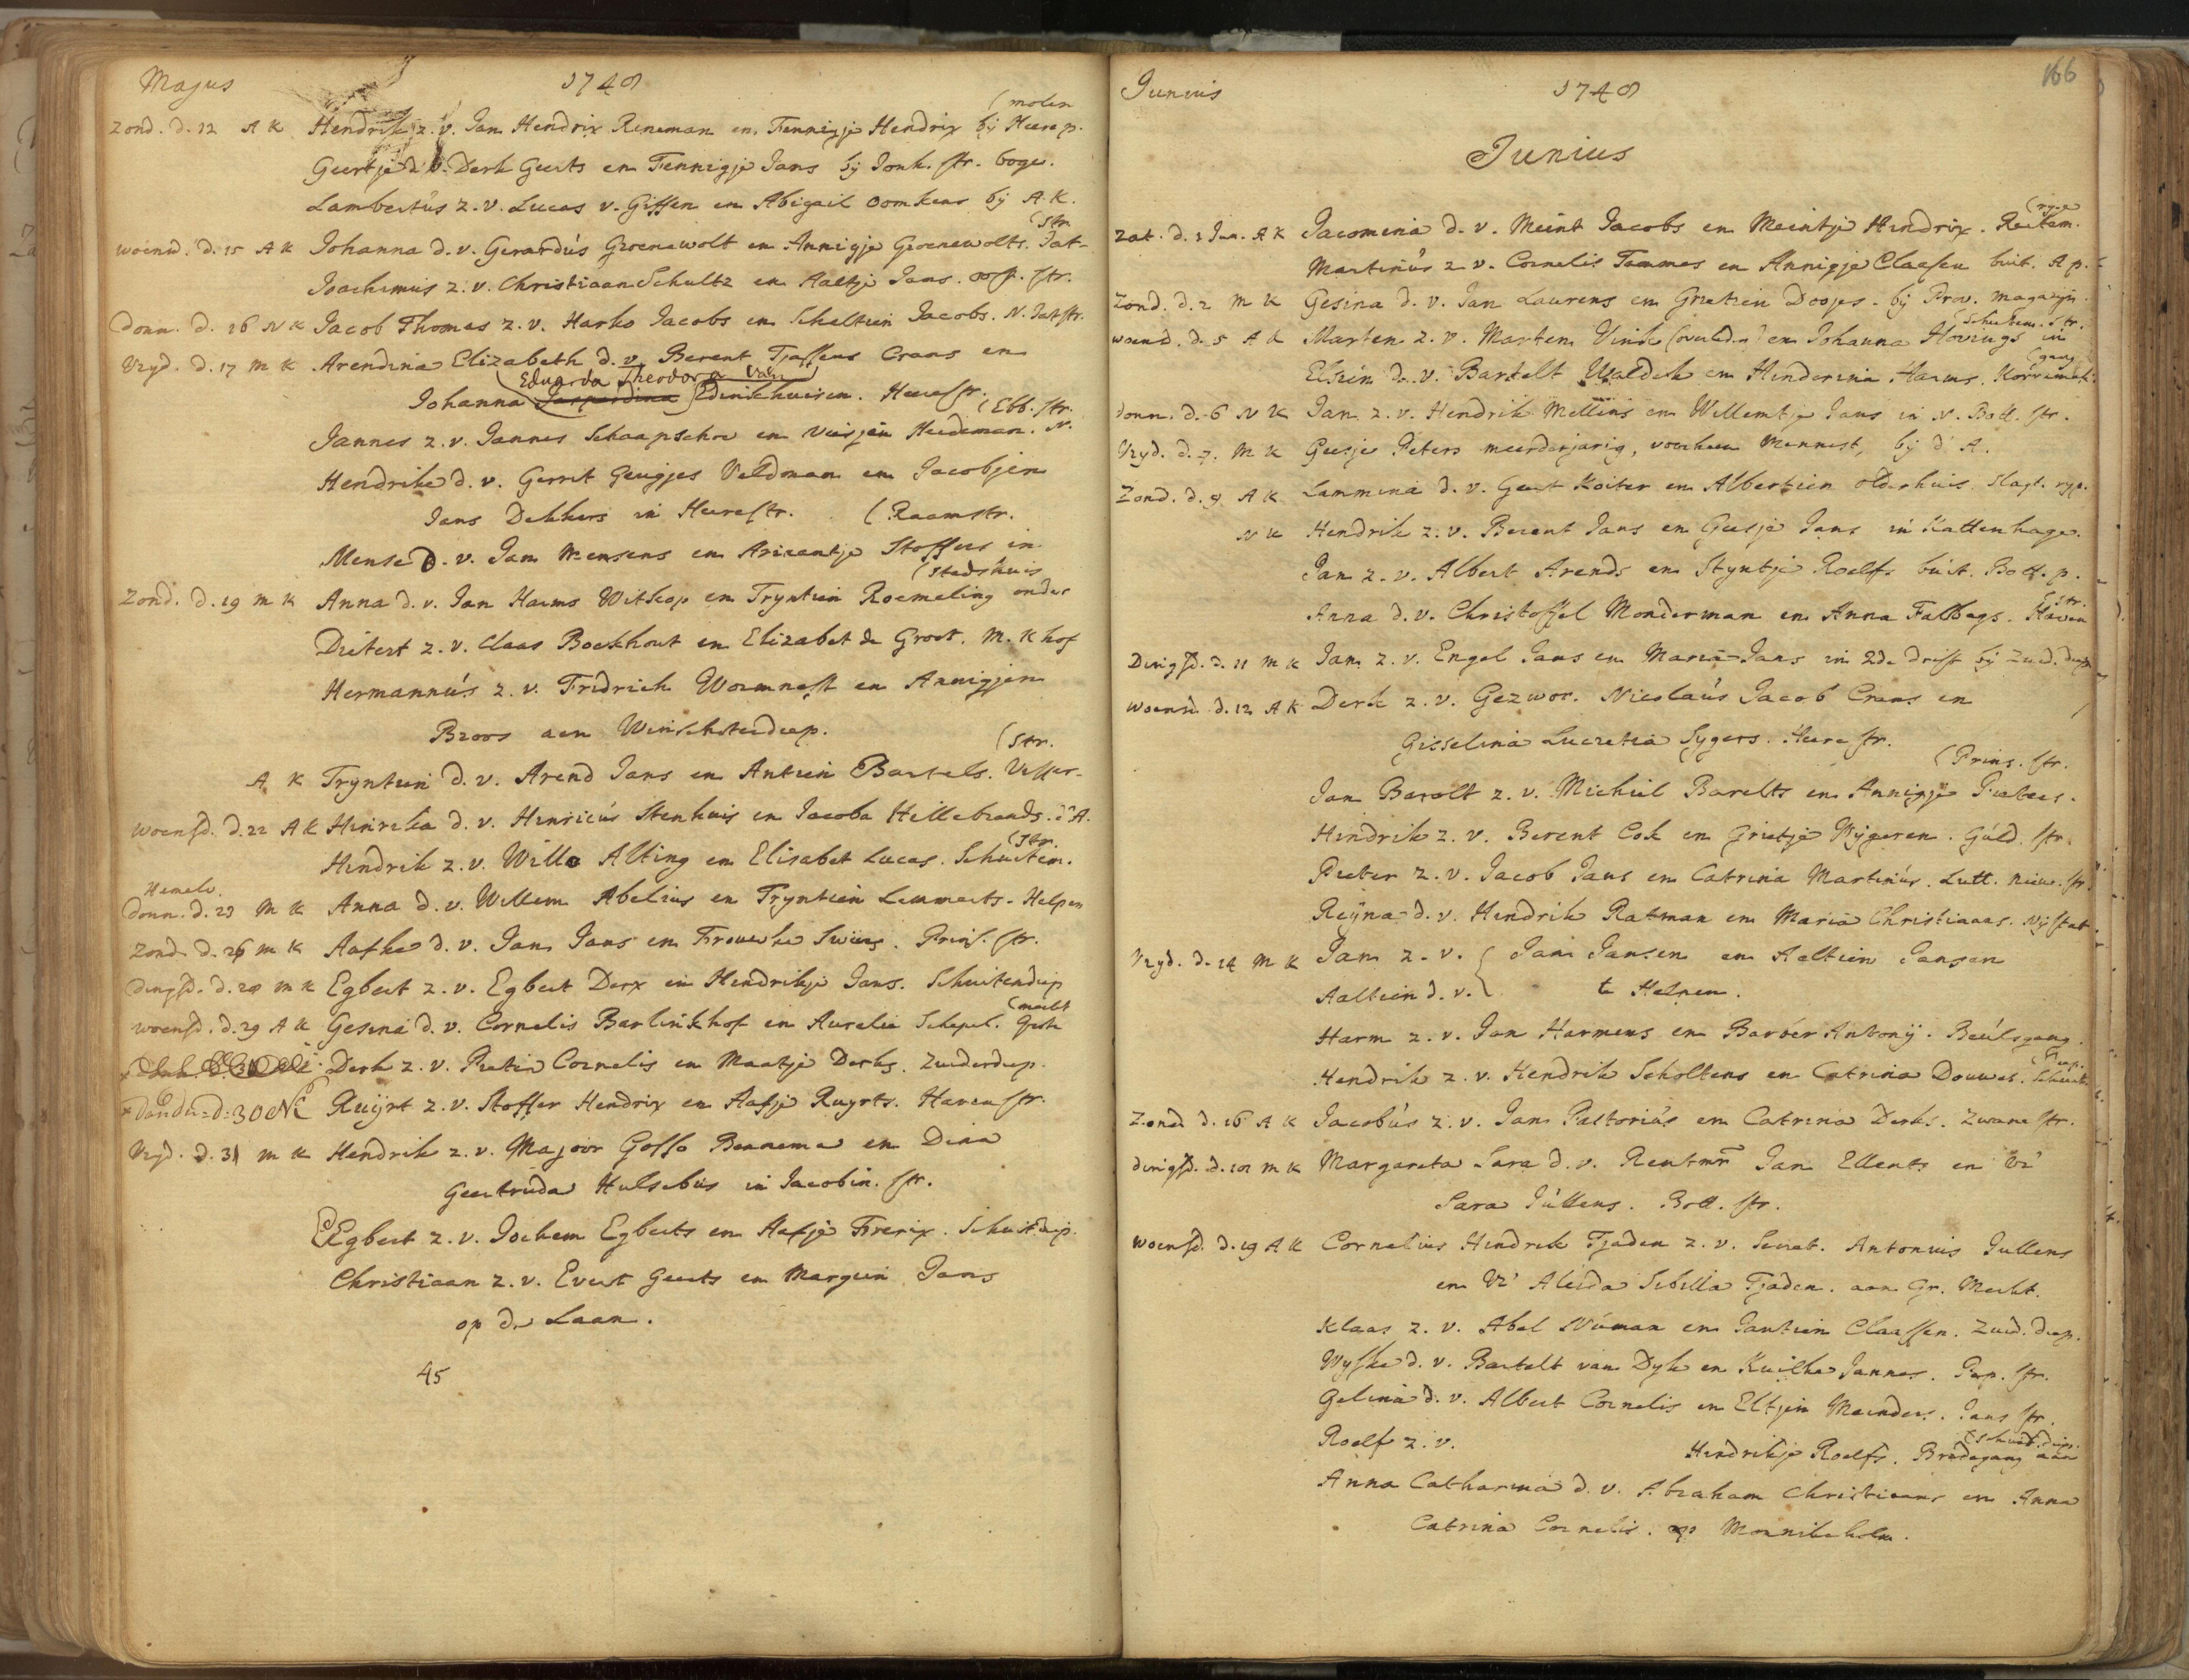 Majus 1748
(molen
Zond. d. 12 A K Hendrik z. v. Jan Hendrix Reneman en Fennigje Hendrix bij Heere p.
Geertje d. v. Derk Geerts en Fennigje Jans bij Jonk. str. boge.
Lambertus z. v. Lucas v. Giffen en Abigail Oomkens bij A. K.
(str.
woensd. d. 15 A K Johanna d. v. Gerardus Groenewolt en Annigje Groenewolts. Jat-
Joachimus z. v. Christiaan Schultz en Aaltje Jans. oost. str.
Donn. d. 16 N K Jacob Thomas z. v. Harko Jacobs en Scheltien Jacobs. N. Jatstr.
Vryd. d. 17 M K Arendina Elizabeth d. v. Berent Tjassens Crans en
(Eduarda Theodora van)
Johanna Edinckhuisen. Heerestr.
(Ebb. str.
Jannes z. v. Jannes Schaapschoe en Viesjen Heideman. N.
Hendrike d. v. Gerrit Geugjes Veldman en Jacobjen
Jans Dekkers in Heerestr. (Raamstr.
Mense d. v. Jan Mensens en Arixentje Stoffers in
(Stadshuis
Zond. d. 19 M K Anna d. v. Jan Harms Witkop en Tryntien Roemeling onder
Dietert z. v. Claas Boekhout en Elizabet de Groot. M. K hof
Hermannus z. v. Fridrich Wormnest en Annigjen
Broos aen Winschoterdiep.
(Str.
A K Tryntien d. v. Arend Jans en Antien Bartels. Visser-
woensd. d. 22 A K Hinrika d. v. Henricus Stenhuis en Jacoba Hillebrands. d'A.
(Str.
Hindrik z. v. Wille Alting en Elisabet Lucas. Schuiten.
Hemelv.
Donn. d. 23 M K Anna d. v. Willem Abelius en Tryntien Lemmerts. Helpen
Zond. d. 26 M K Aafke d. v. Jan Jans en Frouwke Swiers. Prins. str.
dingsd. d. 28 M K Egbert z. v. Egbert Derx en Hendrikje Jans. Schuitendiep
(merkt
woensd. d. 29 A K Gesina d. v. Cornelis Barlinkhof en Aurelia Schepel. Grote
Derk z. v. Pieter Cornelis en Maatje Derks. Zuiderdiep.
Donder: d: 30 NK Ruijrt z. v. Stoffer Hendrix en Aafje Ruyrts. Havenstr.
Vryd. d. 31 M K Hendrik z. v. Majoor Gosso Bennema en Dina
Geertruda Hulsebus in Jacobin. str.
Egbert z. v. Jochem Egberts en Aafje Frerix. Schuit.diep.
Christiaan z. v. Evert Geerts en Margien Jans
op de Laan.
45
Junius 1748 166
Junius
(ryge
Zat. d. 1 Jun. A K Jacomina d. v. Meint Jacobs en Meintje Hindrix. Reitem.
Martinus z. v. Cornelis Tammes en Annigje Claasen buit. A p.
Zond. d. 2 M K Gesina d. v. Jan Laurens en Grietien Doojes. bij Prov. magazijn.
(Schuitem. Str.
woensd. d. 5 A K Marten z. v. Marten Vink (overled.n) en Johanna Hovings in
(gang
Elsien d. v. Bartelt Waldek en Hinderina Harms. Korremak.
donn. d. 6 N K Jan z. v. Hendrik Mellins en Willemtje Jans in N. Bott. str.
Vryd. d. 7. M K Geesje Peters meerderjarig, voorheen Mennist, bij d' A.
Zond. d. 9 A K Lammina d. v. Geert Koiter en Albertien olderhuis. Slagt. ryge.
N K Hendrik z. v. Berent Jans en Geesje Jans in Kattenhage.
Jan z. v. Albert Arends en Styntje Roelfs buit. Bott. p.
(str.
Anna d. v. Christoffel Monderman en Anna Falbags. Haven
Dingsd. d. 11 M K Jan z. v. Engel Jans en Maria Jans in 2de drift bij Zuid. diep
woensd. d. 12 A K Derk z. v. Gezwor. Nicolaus Jacob Crans en
Gisselina Lucretia Sygers. Heere str.
(Prins. str.
Jan Barelt z. v. Michiel Barelts en Annigje Pieters.
Hindrik z. v. Berent Cok en Grietje Wijgeren. Guld. str.
Pieter z. v. Jacob Jans en Catrina Martinus. Lutt. nieuw. str.
Reijna d. v. Hendrik Ratman en Maria Christiaans. Nystat.
Vryd. d. 14 M K Jan z. v. { Jan Jansen en Aeltien Jansen
Aaltien d. v. { te Helpen.
Harm z. v. Jan Harmens en Barber Antonij. Beulsgang.
(diep.
Hendrik z. v. Hendrik Scholtens en Catrina Douwes. Schuite
Zond. d. 16 A K Jacobus z. v. Jan Pastorius en Catrina Derks. Zwane str.
dingsd. d. 18 M K Margareta Sara d. v. Rentmr Jan Ellents en Vr'
Sara Jullens. Bott. str.
Woensd. d. 19 A K Cornelius Hindrik Tjaden z. v. Secret. Antonius Jullens
en Vr' Aleida Sibilla Tjaden. aan Gr. Merkt.
Klaas z. v. Abel Numan en Jantien Claassen. Zuid. diep.
Wyske d. v. Bartelt van Dyk en Kuilke Jannes. Pap. str.
Gelina d. v. Albert Cornelis en Eltjen Meinders. Jans str.
(schuit. diep.
Roelf z. v. Hindrikje Roelfs. Bredegang aan
Anna Catharina d. v. Abraham Christiaans en Anna
Catrina Cornelis. op Monnikeholm.